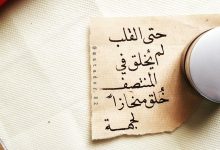 حتى القلب
لم يُخلق في
المنتصف
خُلق منحازاً
لجهة